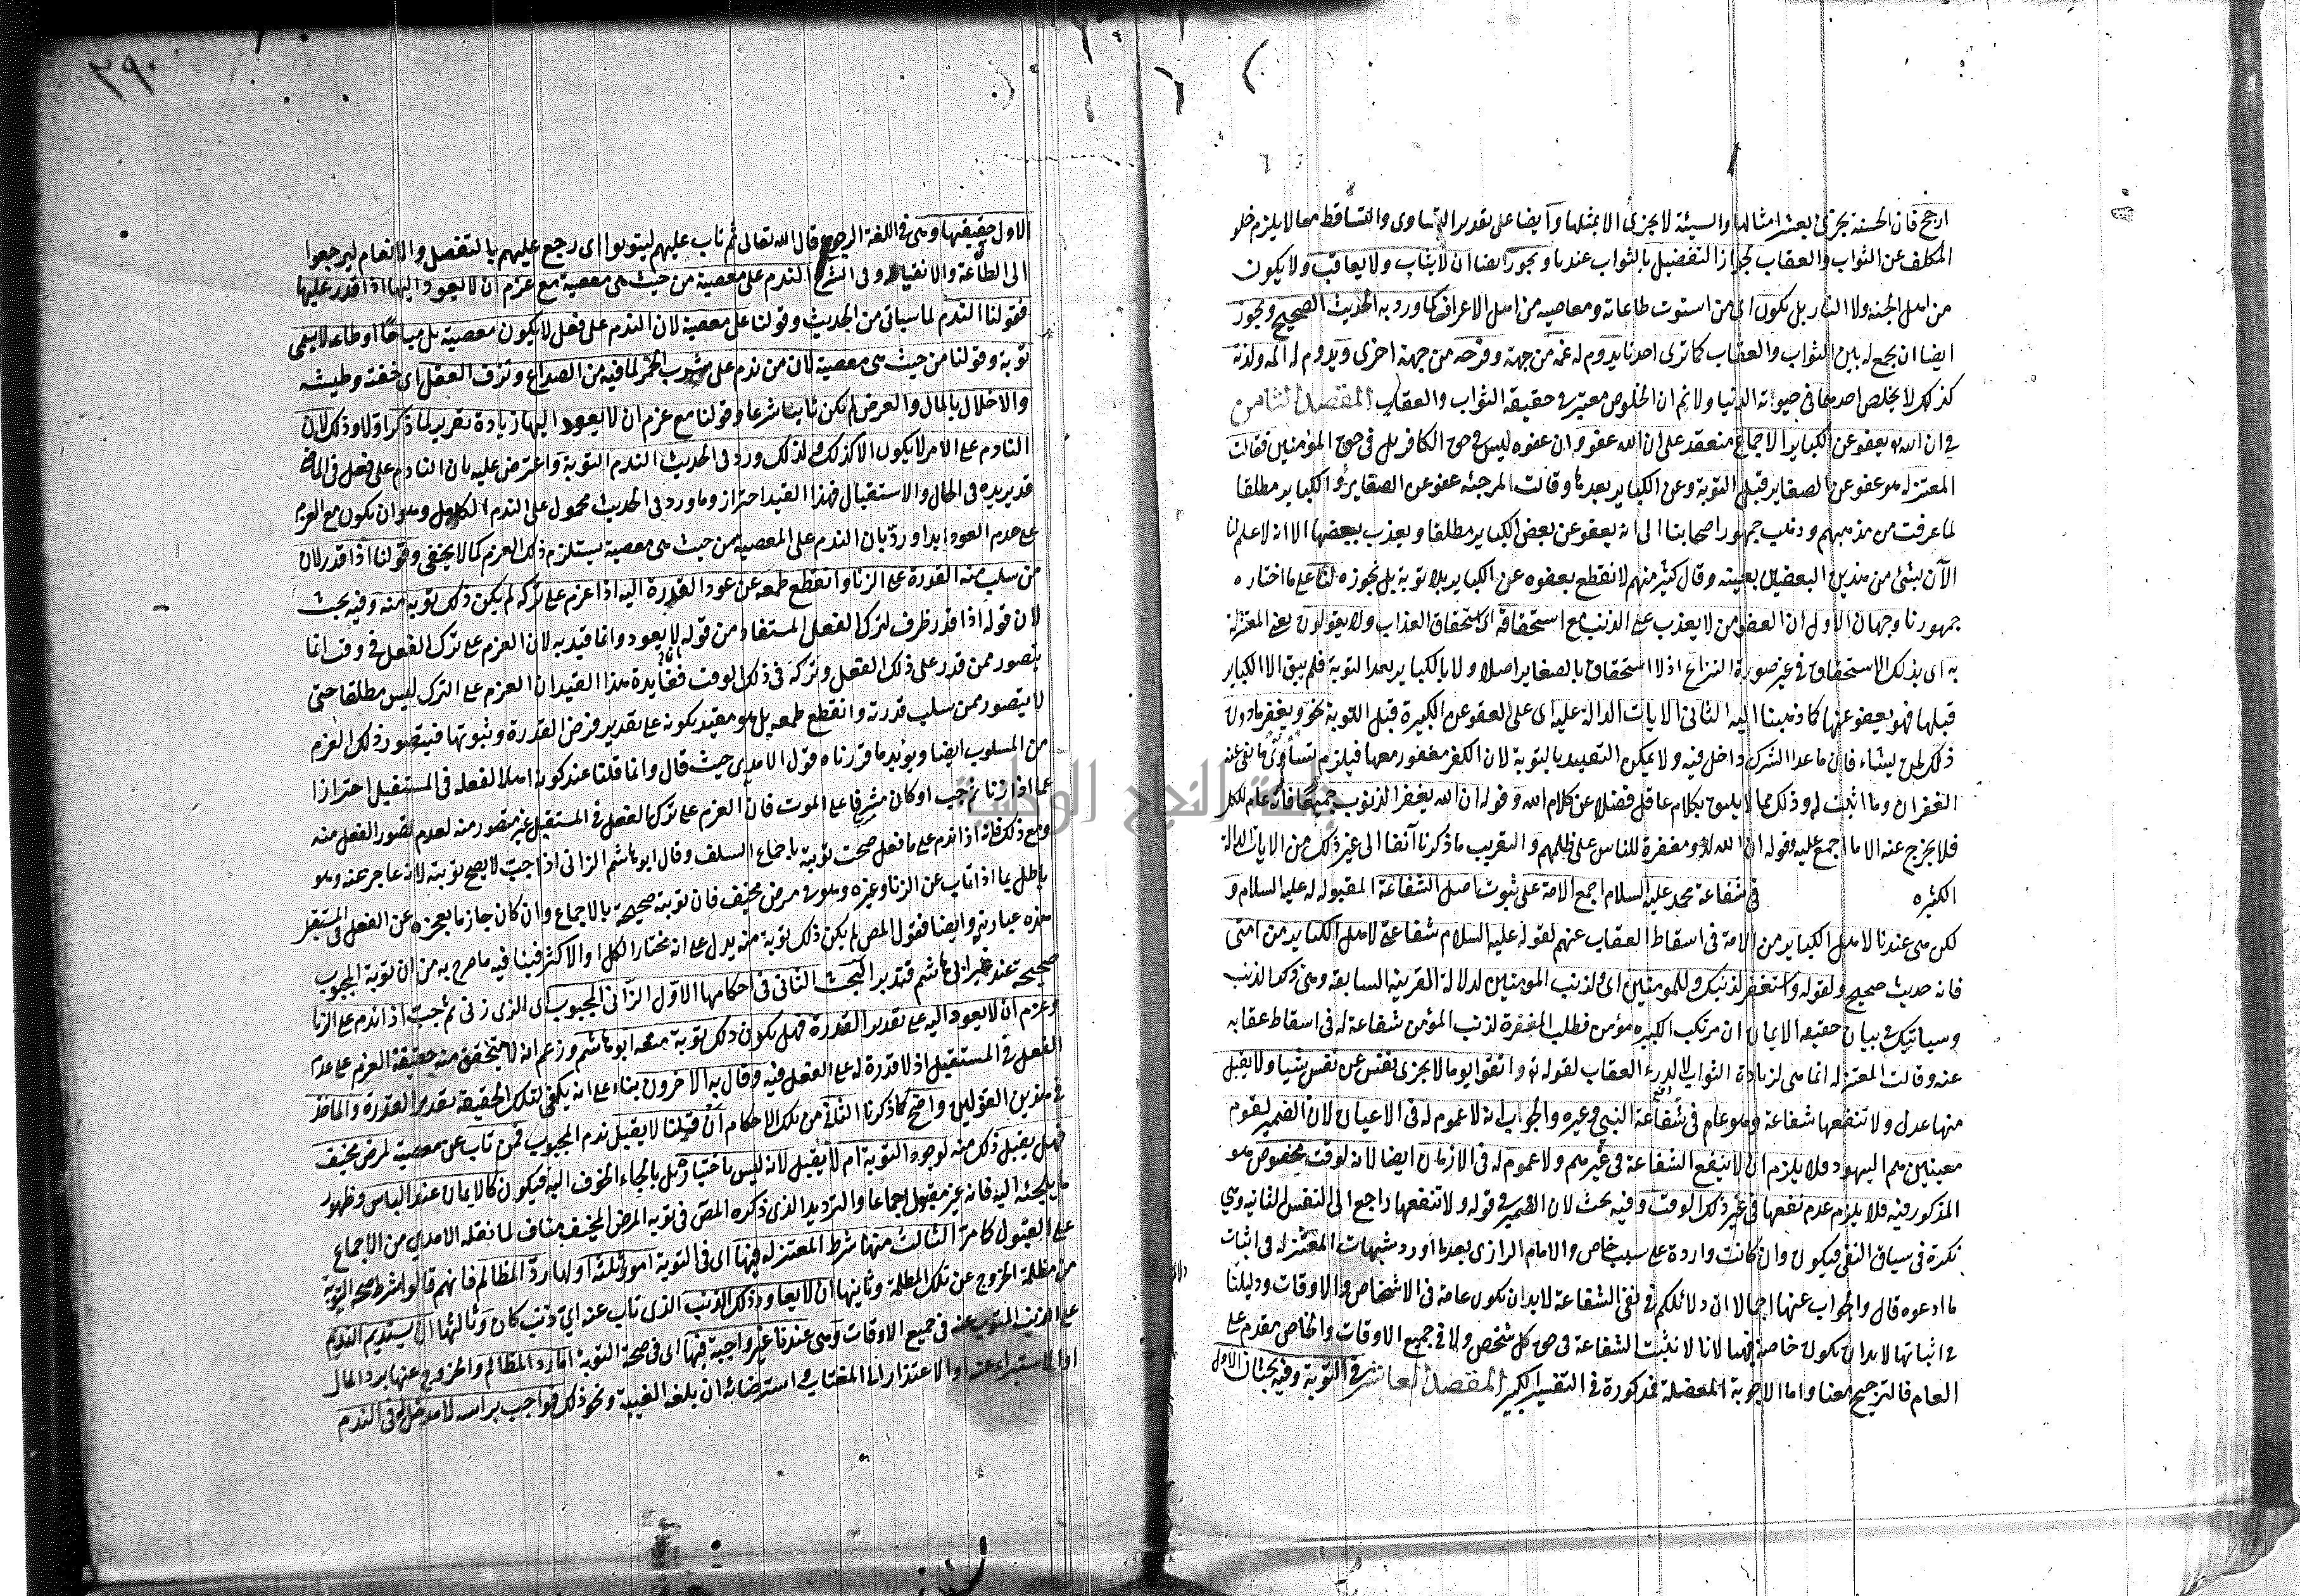 ارجح فان الحسنة يجزى بعشر امثالها والسيئة لا يجزى الا بمثلها وايضا على تقدير التساوى والتساقط معا لا يلزم خلو
المكلف عن الثواب والعقاب لجواز التفضيل بالثواب عندنا ويجوز ايضا ان لا يثاب ولا يعاقب ولا يكون
من اهل الجنه ولا النار بل يكون اى من استوت طاعاته ومعاصيه من اهل الاعراف كما ورد به الحديث الصحيح ويجوز
ايضا ان يجمع له بين الثواب والعقاب كما ترى احدنا يدوم له غمه من جهة وفرحه من جهة اخرى ويدوم له المه ولذته
كذلك لا يخلص احدهما فى حيوته الدنيا ولا نم ان الخلوص معتبر فى حقيقة الثواب والعقاب المقصد الثامن
فى ان الله يعفو عن الكباير الاجماع منعقد على ان الله عفو وان عفوه ليس فى حق الكافر بل فى حق المؤمنين فقالت
المعتزله هو عفو عن الصغاير قبل التوبة وعن الكباير بعدها وقالت المرجئه عفو عن الصغاير والكباير مطلقا
لما عرفت من مذهبهم وذهب جمهور اصحابنا الى انه يعفو عن بعض الكباير مطلقا ويعذب ببعضها الا انه لا علم لنا
الآن بشئ من هذين البعضين بعينه وقال كثير منهم لا نقطع بعفوه عن الكباير بلا توبة بل نجوزه لنا على ما اختاره
جمهورنا وجهان الاول ان العفو من لا يعذب على الذنب مع استحقاقه اى استحقاق العذاب ولا يقولون يعنى المعتزلة
به اى بذلك الاستحقاق فى غير صورة النزاع اذ لا استحقاق بالصغاير اصلا ولا بالكباير بعد التوبة فلم يبق الا الكباير
قبلها فهو يعفو عنها كما ذهبنا اليه الثانى الايات الدالة عليه اى على العفو عن الكبيرة قبل التوبة نحو ويغفر ما دون
ذلك لمن يشاء فان ما عدا الشرك داخل فيه ولا يمكن التقييد بالتوبة لان الكفر مغفور معها فيلزم تساوى ما نفى عنه
الغفران وما اثبت له وذلك مما لا يليق بكلام عاقل فضلا عن كلام الله وقوله ان الله يغفر الذنوب جميعا فانه عام للكل
فلا يخرج عنه الا ما اجمع عليه وقوله ان الله لذو مغفرة للناس على ظلمهم والتقريب ما ذكرنا آنفا الى غير ذلك من الايات الدالة
الكثيره فى شفاعة محمد عليه السلام اجمع الامة على ثبوت اصل الشفاعة المقبوله له عليه السلام و
لكن هى عندنا لاهل الكباير من الامة فى اسقاط العقاب عنهم لقوله عليه السلام شفاعتى لاهل الكباير من امتى
فانه حديث صحيح ولقوله واستغفر لذنبك وللمومنين اى ولذنب المومنين لدلالة القرينه السابقه وهى ذكر الذنب
وسياتيك فى بيان حقيقه الايمان ان مرتكب الكبيره مؤمن فطلب المغفرة لذنب المؤمن شفاعة له فى اسقاط عقابه
عنه وقالت المعتزله انما هى لزيادة الثواب لا لدرء العقاب لقوله تع واتقوا يوما لا تجزى نفس عن نفس شيئا ولا يقبل
منها عدل ولا تنفعها شفاعة وهو عام فى شفاعة النبى وغيره والجواب انه لا عموم له فى الاعيان لان الضمير لقوم
معينين هم اليهود فلا يلزم ان لا ينفع الشفاعة فى غيرهم ولا عموم له فى الازمان ايضا لانه لوقت مخصوص هو
المذكور فيه فلا يلزم عدم نفعها فى غير ذلك الوقت وفيه بحث لان الضمير فى قوله ولا تنفعها راجع الى النفس الثانيه وهى
نكرة فى سياق النفى فيكون وان كانت واردة على سبب خاص والامام الرازى بعد ما اورد شبهات المعتزله فى اثبات
ما ادعوه قال والجواب عنها اجمالا ان دلائلكم فى نفى الشفاعة لا بد ان يكون عامة فى الاشخاص والاوقات ودليلنا
فى اثباتها لا بد ان يكون خاصة فيهما لانا لا نثبت الشفاعة فى حق كل شخص ولا فى جميع الاوقات والخاص مقدم على
العام فالترجيح معنا واما الاجوبة المفصلة فمذكورة فى التفسير الكبير المقصد العاشر فى التوبة وفيه بحثان الاول
٢٩٠
الاول حقيقتها وهى فى اللغة الرجوع قال الله تعالى ثم تاب عليهم ليتوبوا اى رجع عليهم بالتفضل والانعام ليرجعوا
الى الطاعة والانقياد وفى الشرع الندم على معصية من حيث هى معصية مع عزم ان لا يعود اليها اذا قدر عليها
فقولنا الندم لما سياتى من الحديث وقولنا على معصية لان الندم على فعل لا يكون معصية بل مباحا او طاعه لا يسمى
توبة وقولنا من حيث هى معصية لان من ندم على شرب الخمر لما فيه من الصداع ونزف العقل اى خفته وطيشه
والاخلال بالمال والعرض لم يكن تائبا شرعا وقولنا مع عزم ان لا يعود اليها زيادة تقرير لما ذكر اولا وذلك لان
النادم على الامر لا يكون الا كذلك ولذلك ورد فى الحديث الندم التوبة واعترض عليه بان النادم على فعل فى الماضى
قد يريده فى الحال والاستقبال فهذا القيد احتراز وما ورد فى الحديث محمول على الندم الكامل وهو ان يكون مع العزم
على عدم العود ابدا ورد بان الندم على المعصية من حيث هى معصية يستلزم ذلك العزم كما لا يخفى وقولنا اذا قدر لان
من سلب منه القدرة على الزنا وانقطع طمعه عن عود القدرة اليه اذا عزم على تركه لم يكن ذلك توبة منه وفيه بحث
لان قوله اذا قدر ظرف لترك الفعل المستفاد من قوله لا يعود وانما قيد به لان العزم على ترك الفعل فى وقت انما
يتصور ممن قدر على ذلك الفعل وتركه فى ذلك الوقت ففايدة هذا القيد ان العزم على الترك ليس مطلقا حتى
لا يتصور ممن سلب قدرته وانقطع طمعه بل هو مقيد بكونه على تقدير فرض القدرة وثبوتها فيتصور ذلك العزم
من المسلوب ايضا ويؤيد ما قررناه قول الامدى حيث قال وانما قلنا عند كونه اهلا لفعله فى المستقبل احترازا
عما اذا زنا ثم جب او كان مشرفا على الموت فان العزم على ترك الفعل فى المستقبل غير متصور منه لعدم تصور الفعل منه
ومع ذلك فانه اذا ندم على ما فعل صحت توبته باجماع السلف وقال ابو هاشم الزانى اذا جب لا يصح توبته لانه عاجز عنه وهو
باطل بما اذا تاب عن الزنا وغيره وهو فى مرض مخيف فان توبته صحيحة بالاجماع وان كان جازما بعجزه عن الفعل فى المستقبل
هذه عبارته وايضا فقول المص لم يكن ذلك توبة منه يدل على انه مختار الكل او الاكثر فينا فيه ما صرح به من ان توبة المجبوب
صحيحة عند غير ابى هاشم فتدبر البحث الثانى فى احكامها الاول الزانى المجبوب اى الذى زنى ثم جب اذا ندم على الزنا
وعزم ان لا يعود اليه على تقدير القدرة فهل يكون ذلك توبة منعه ابو هاشم وزعم انه لا يتحقق منه حقيقة العزم على عدم
الفعل فى المستقبل اذ لا قدرة له على الفعل فيه وقال به الاخرون بناء على انه يكفى لتلك الحقيقة تقدير القدرة والماخذ
فى هذين القولين واضح كما ذكرنا الثانى من تلك الاحكام ان قلنا لا يقبل ندم المجبوب فمن تاب عن معصية لمرض مخيف
فهل يقبل ذلك منه لوجود التوبة ام لا يقبل لانه ليس باختياره بل بالجاء الخوف اليه فيكون كالايمان عند الياس وظهور
ما يلجئه اليه فانه غير مقبول اجماعا والترديد الذى ذكره المص فى توبه المرض المخيف مناف لما نقله الامدى من الاجماع
على القبول كما مر الثالث منها شرط المعتزله فيها اى فى التوبة امور ثلثه اولها رد المظالم فانهم قالوا شرط صحه التوبة
من مظلمة الخروج عن تلك المظلمة وثانيها ان لا يعاود ذلك الذنب الذى تاب عنه اى ذنب كان وثالثها ان يستديم الندم
على الذنب المتوب عنه فى جميع الاوقات وهى عندنا غير واجبة فيها اى فى صحة التوبة اما رد المظالم والخروج عنها برد المال
او الاستبراء عنه او الاعتذار الى المغتاب واسترضائه ان بلغه الغيبة ونحو ذلك فواجب براسه لا مدخل له فى الندم